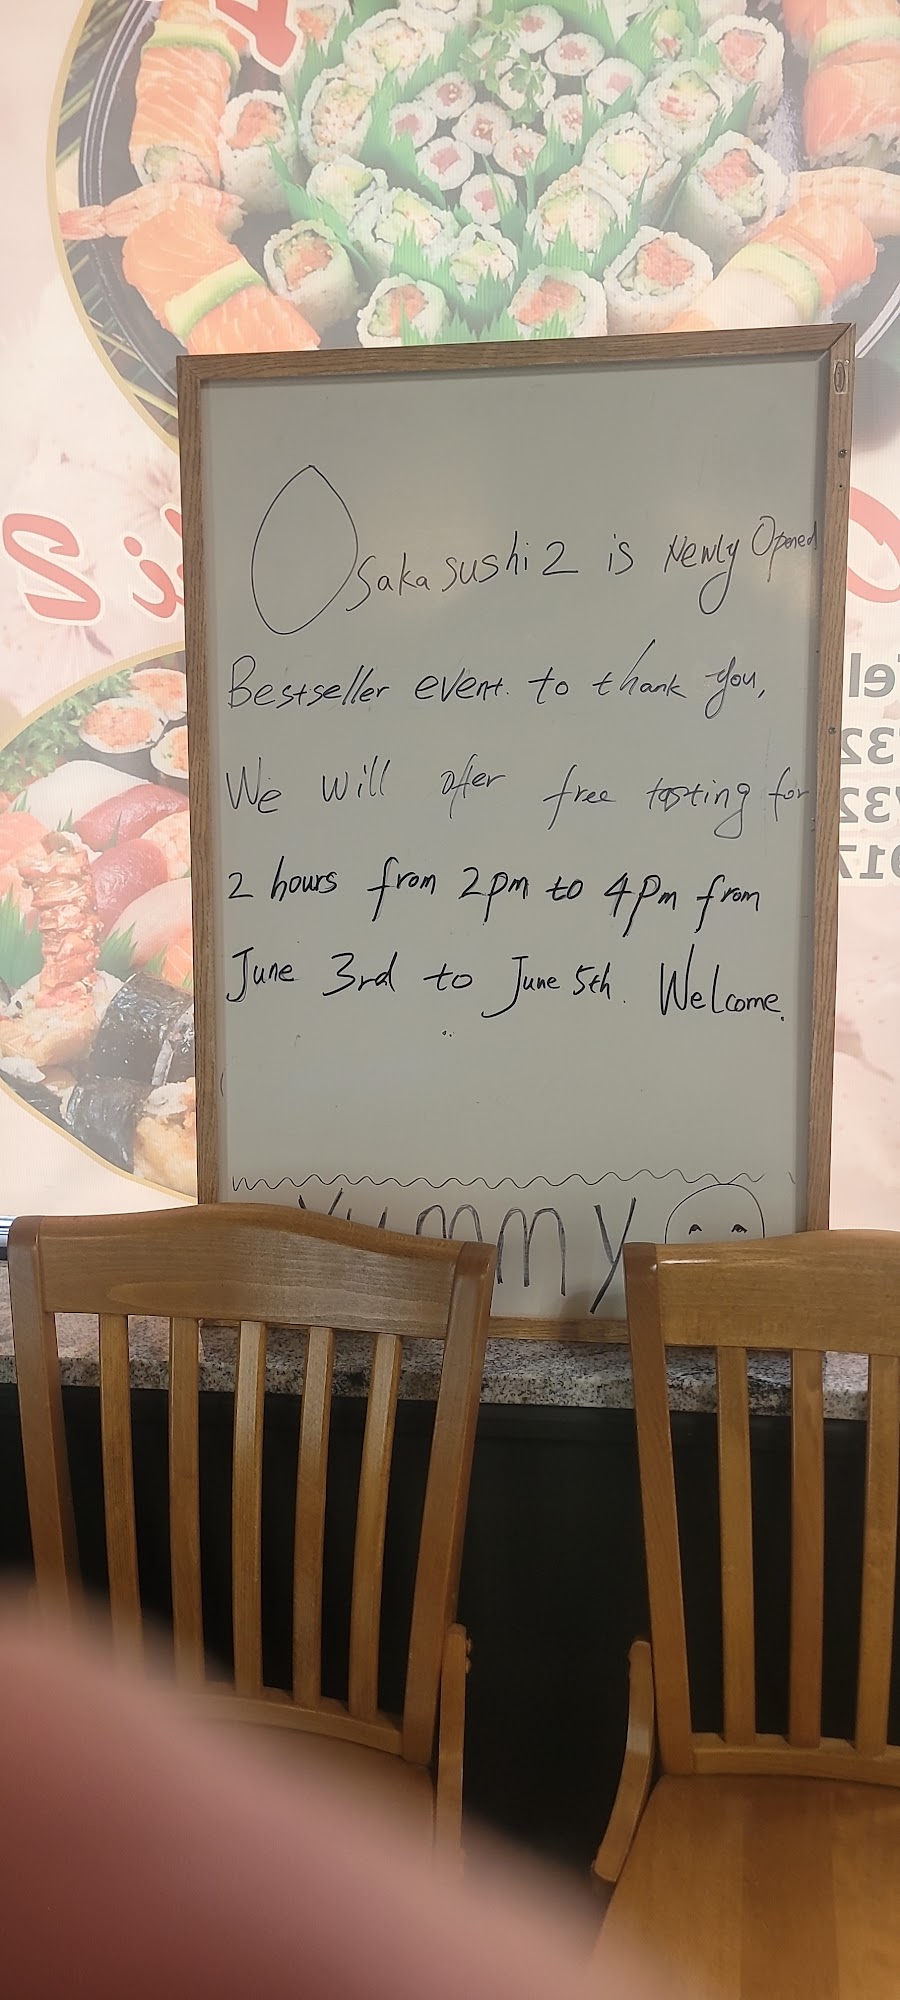 Osaka sushi 2 is Newly Opened
Bestseller event. to thank you,
We will offer free tasting for
2 hours from 2pm to 4pm from
June 3rd to June 5th. Welcome.
Yummy
i 2
Tel
732
732
917